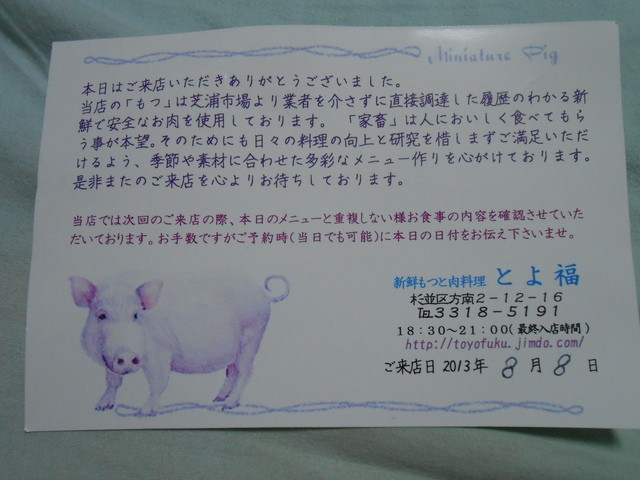 Miniature Pig
本日はご来店いただきありがとうございました。
当店の「もつ」は芝浦市場より業者を介さずに直接調達した履歴のわかる新
鮮で安全なお肉を使用しております。 「家畜」は人においしく食べてもら
う事が本望。そのためにも日々の料理の向上と研究を惜しまずご満足いただ
けるよう、季節や素材に合わせた多彩なメニュー作りを心がけております。
是非またのご来店を心よりお待ちしております。
当店では次回のご来店の際、本日のメニューと重複しない様お食事の内容を確認させていた
だいております。お手数ですがご予約時(当日でも可能)に本日の日付をお伝え下さいませ。
新鮮もつと肉料理 とよ福
杉並区方南2-12-16
℡3318-5191
18:30~21:00(最終入店時間)
http://toyofuku.jimdo.com/
ご来店日 2013年 8 月 8 日